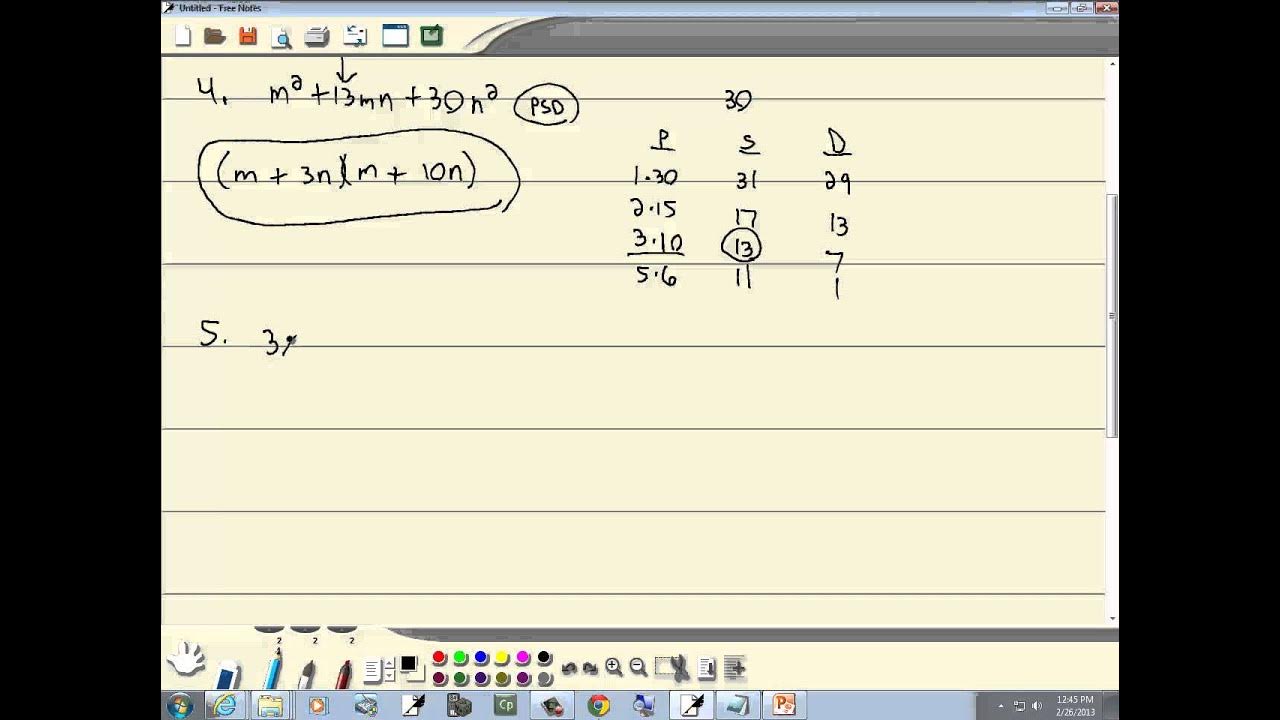 Untitled - Free Notes
4. m² + 13mn + 30n² PSD
(m + 3n)(m + 10n)
30
P S D
1·30 31 29
2·15 17 13
3·10 13 7
5·6 11 1
5. 3
2 2 2
Cp
12:45 PM
2/26/2013